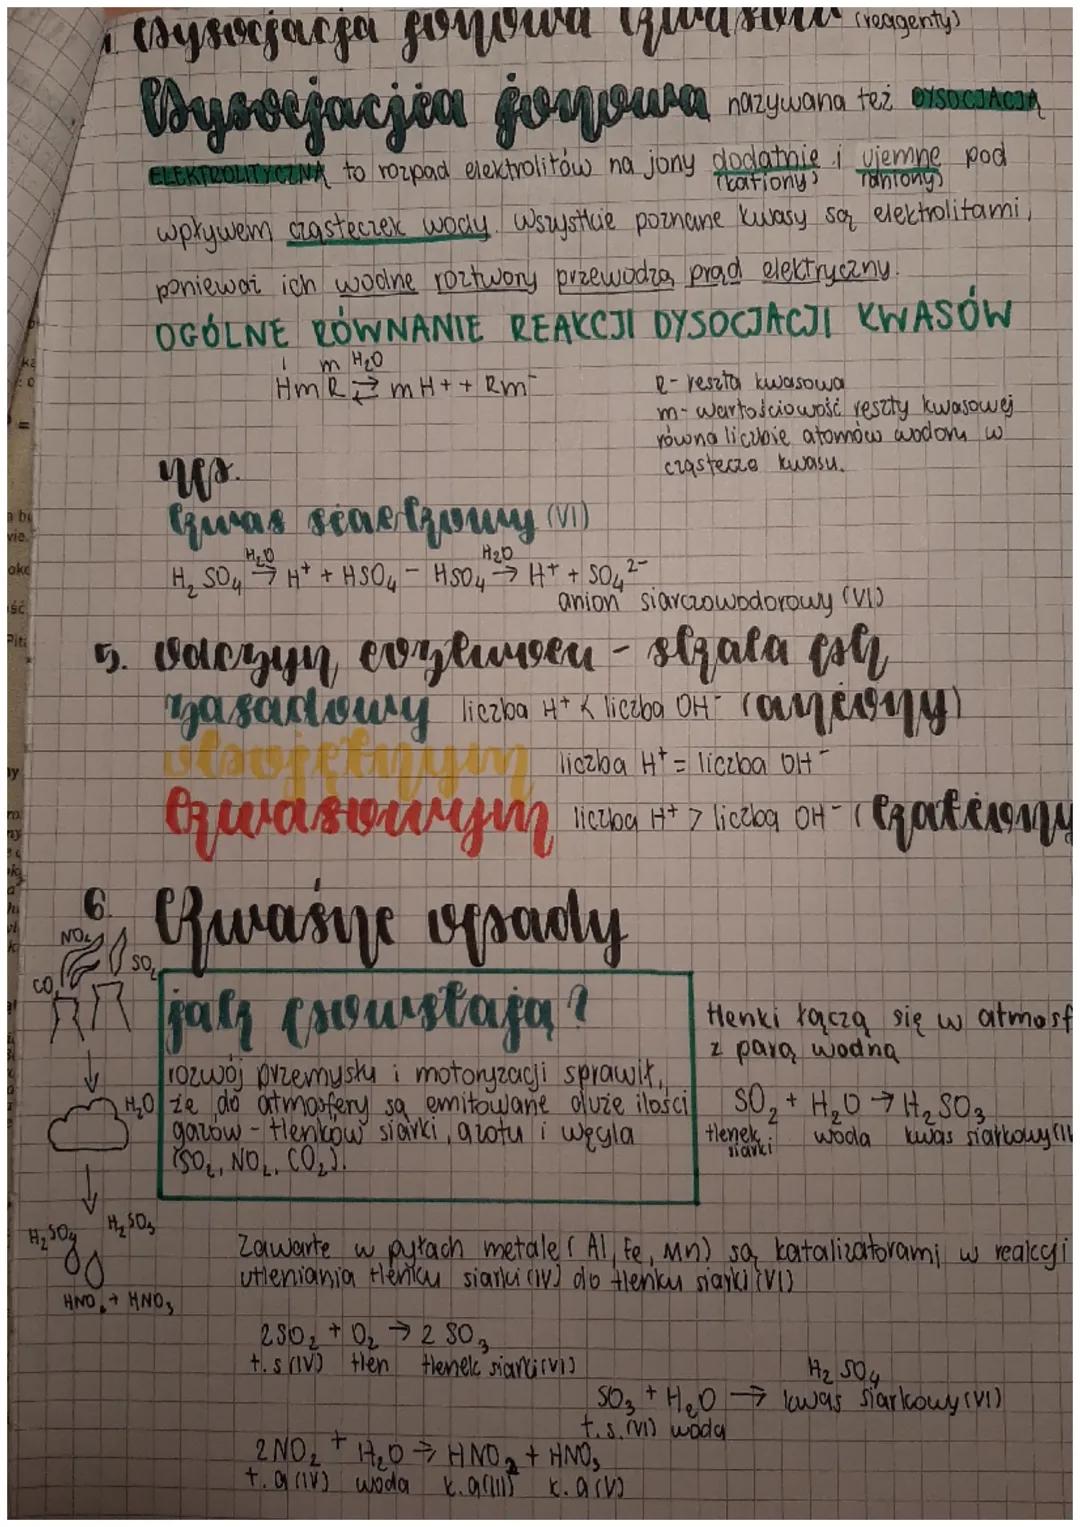 Dysocjacja jonowa kwasów (reagenty)
Dysocjacja jonowa nazywana też DYSOCJACJĄ
ELEKTROLITYCZNĄ to rozpad elektrolitów na jony dodatnie i ujemne pod
(kationy) (aniony)
wpływem cząsteczek wody. Wszystkie poznane kwasy są elektrolitami,
ponieważ ich wodne roztwory przewodzą prąd elektryczny.
OGÓLNE RÓWNANIE REAKCJI DYSOCJACJI KWASÓW
I m H₂O
HmR ⇄ mH+ + Rm⁻
R- reszta kwasowa
m- wartościowość reszty kwasowej
równa liczbie atomów wodoru w
cząstecze kwasu.
np.
kwas siarkowy (VI)
H₂SO₄ →(H₂O) H⁺ + HSO₄⁻ HSO₄ →(H₂O) H⁺ + SO₄²⁻
anion siarczowodorowy (VI)
5. Odczyn roztworu - skala pH
zasadowy liczba H⁺ < liczba OH⁻ (aniony)
obojętnym liczba H⁺ = liczba OH⁻
kwasowym liczba H⁺ > liczba OH⁻ (kationy
6. Kwaśne opady
NO₂
SO₂
CO₂
jak powstają?
rozwój przemysłu i motoryzacji sprawił,
że do atmosfery są emitowane duże ilości
gazów - tlenków siarki, azotu i węgla
(SO₂, NO₂, CO₂).
H₂O
tlenki łączą się w atmosf
z parą wodną
SO₂ + H₂O → H₂SO₃
tlenek siarki woda kwas siarkowy (I
H₂SO₄ H₂SO₃
HNO₂ + HNO₃
Zawarte w pyłach metale (Al, Fe, Mn) są katalizatorami w reakcji
utleniania tlenku siarki (IV) do tlenku siarki (VI)
2SO₂ + O₂ → 2 SO₃
t. s (IV) tlen tlenek siarki (VI)
H₂SO₄
SO₃ + H₂O → kwas siarkowy (VI)
t. s. (VI) woda
2NO₂ + H₂O → HNO₂ + HNO₃
t. a (IV) woda k. a (III) k. a (V)